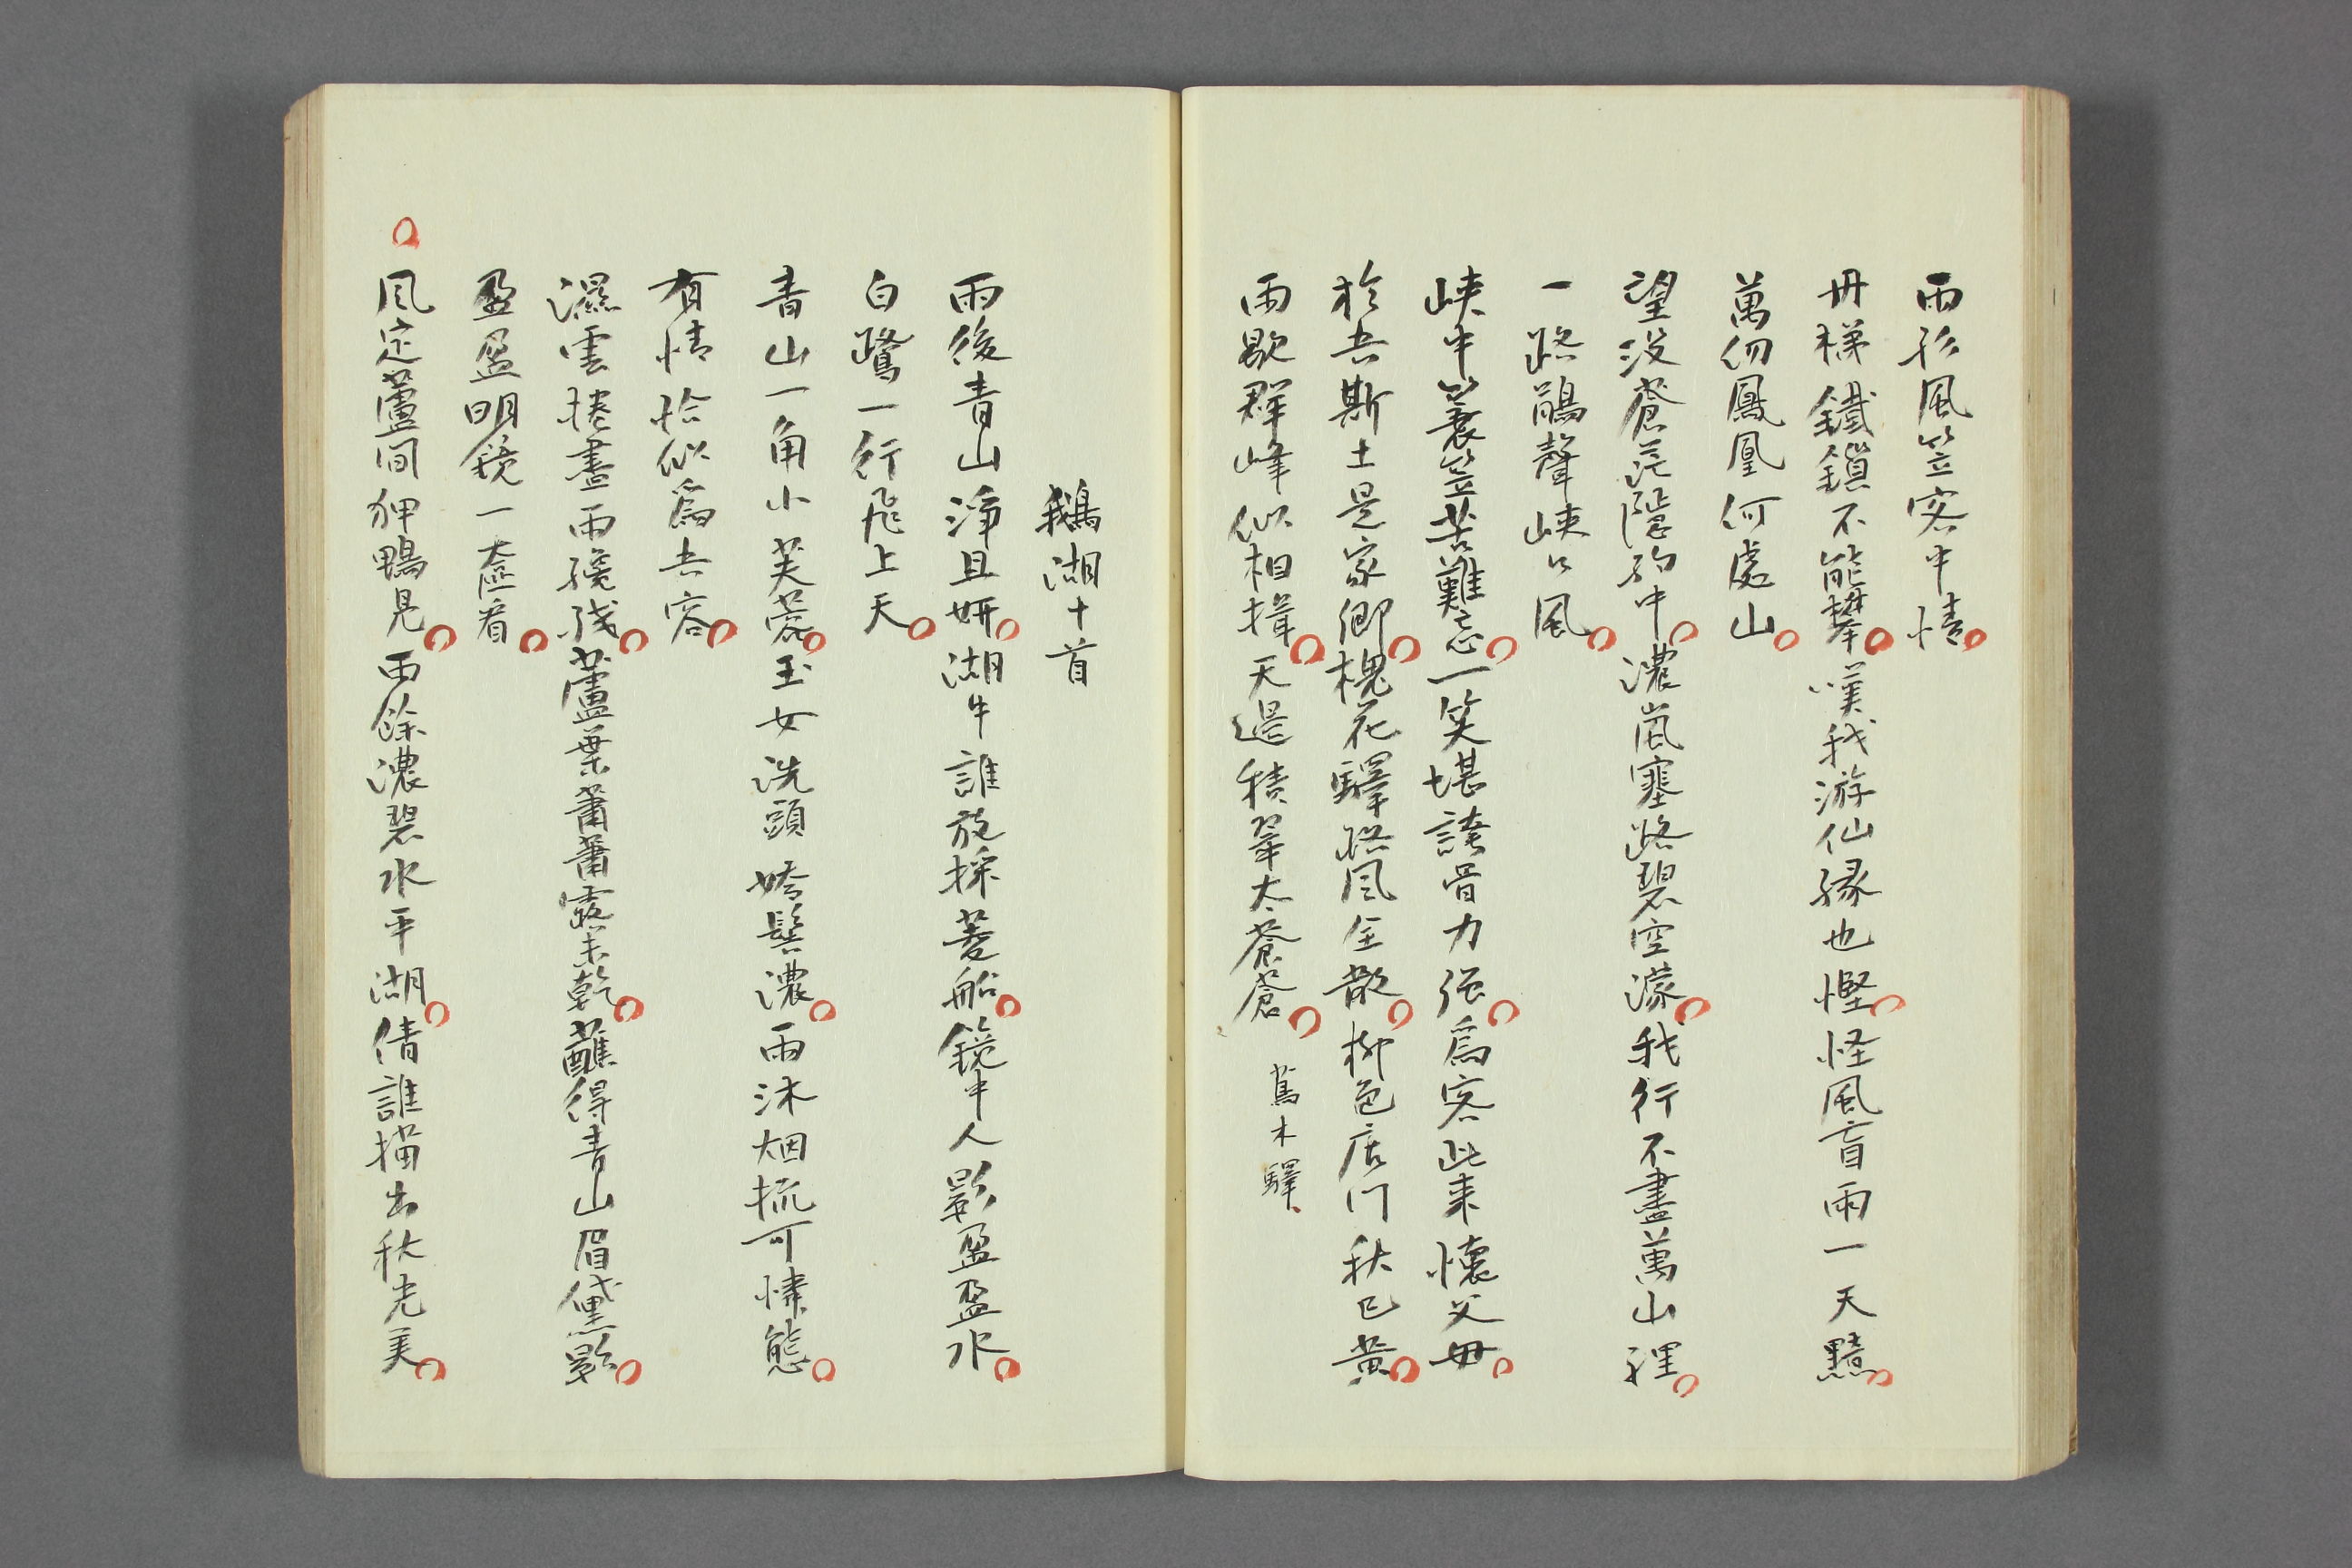 雨衫風笠客中情
丹梯鐵鎖不能攀嘆我游仙緣也慳怪風盲雨一天黯
萬仞鳳凰何處山
望没蒼茫隱約中濃嵐塞路碧空濛我行不盡萬山裡
一路鵑聲峽口風
峽中簑笠苦難忘一笑堪誇骨力强爲客此来懷父母
於吾斯土是家鄉槐花驛路風全散柳色店門秋已黄
雨歇群峰似相揖天邊積翠太蒼蒼 蔦木驛
鵝湖十首
雨後青山淨且妍湖牛誰放採菱船鏡中人影盈盈水
白鷺一行飛上天
青山一角小芙蓉玉女洗頭嬌髻濃雨沐烟梳可憐態
有情恰似爲吾容
濕雲捲盡雨殘殘蘆葉蕭蕭露未乾蘸得青山眉黛影
盈盈明鏡一奩看
風定蘆間狎鴨鳧雨餘濃碧水平湖倩誰描出秋光美